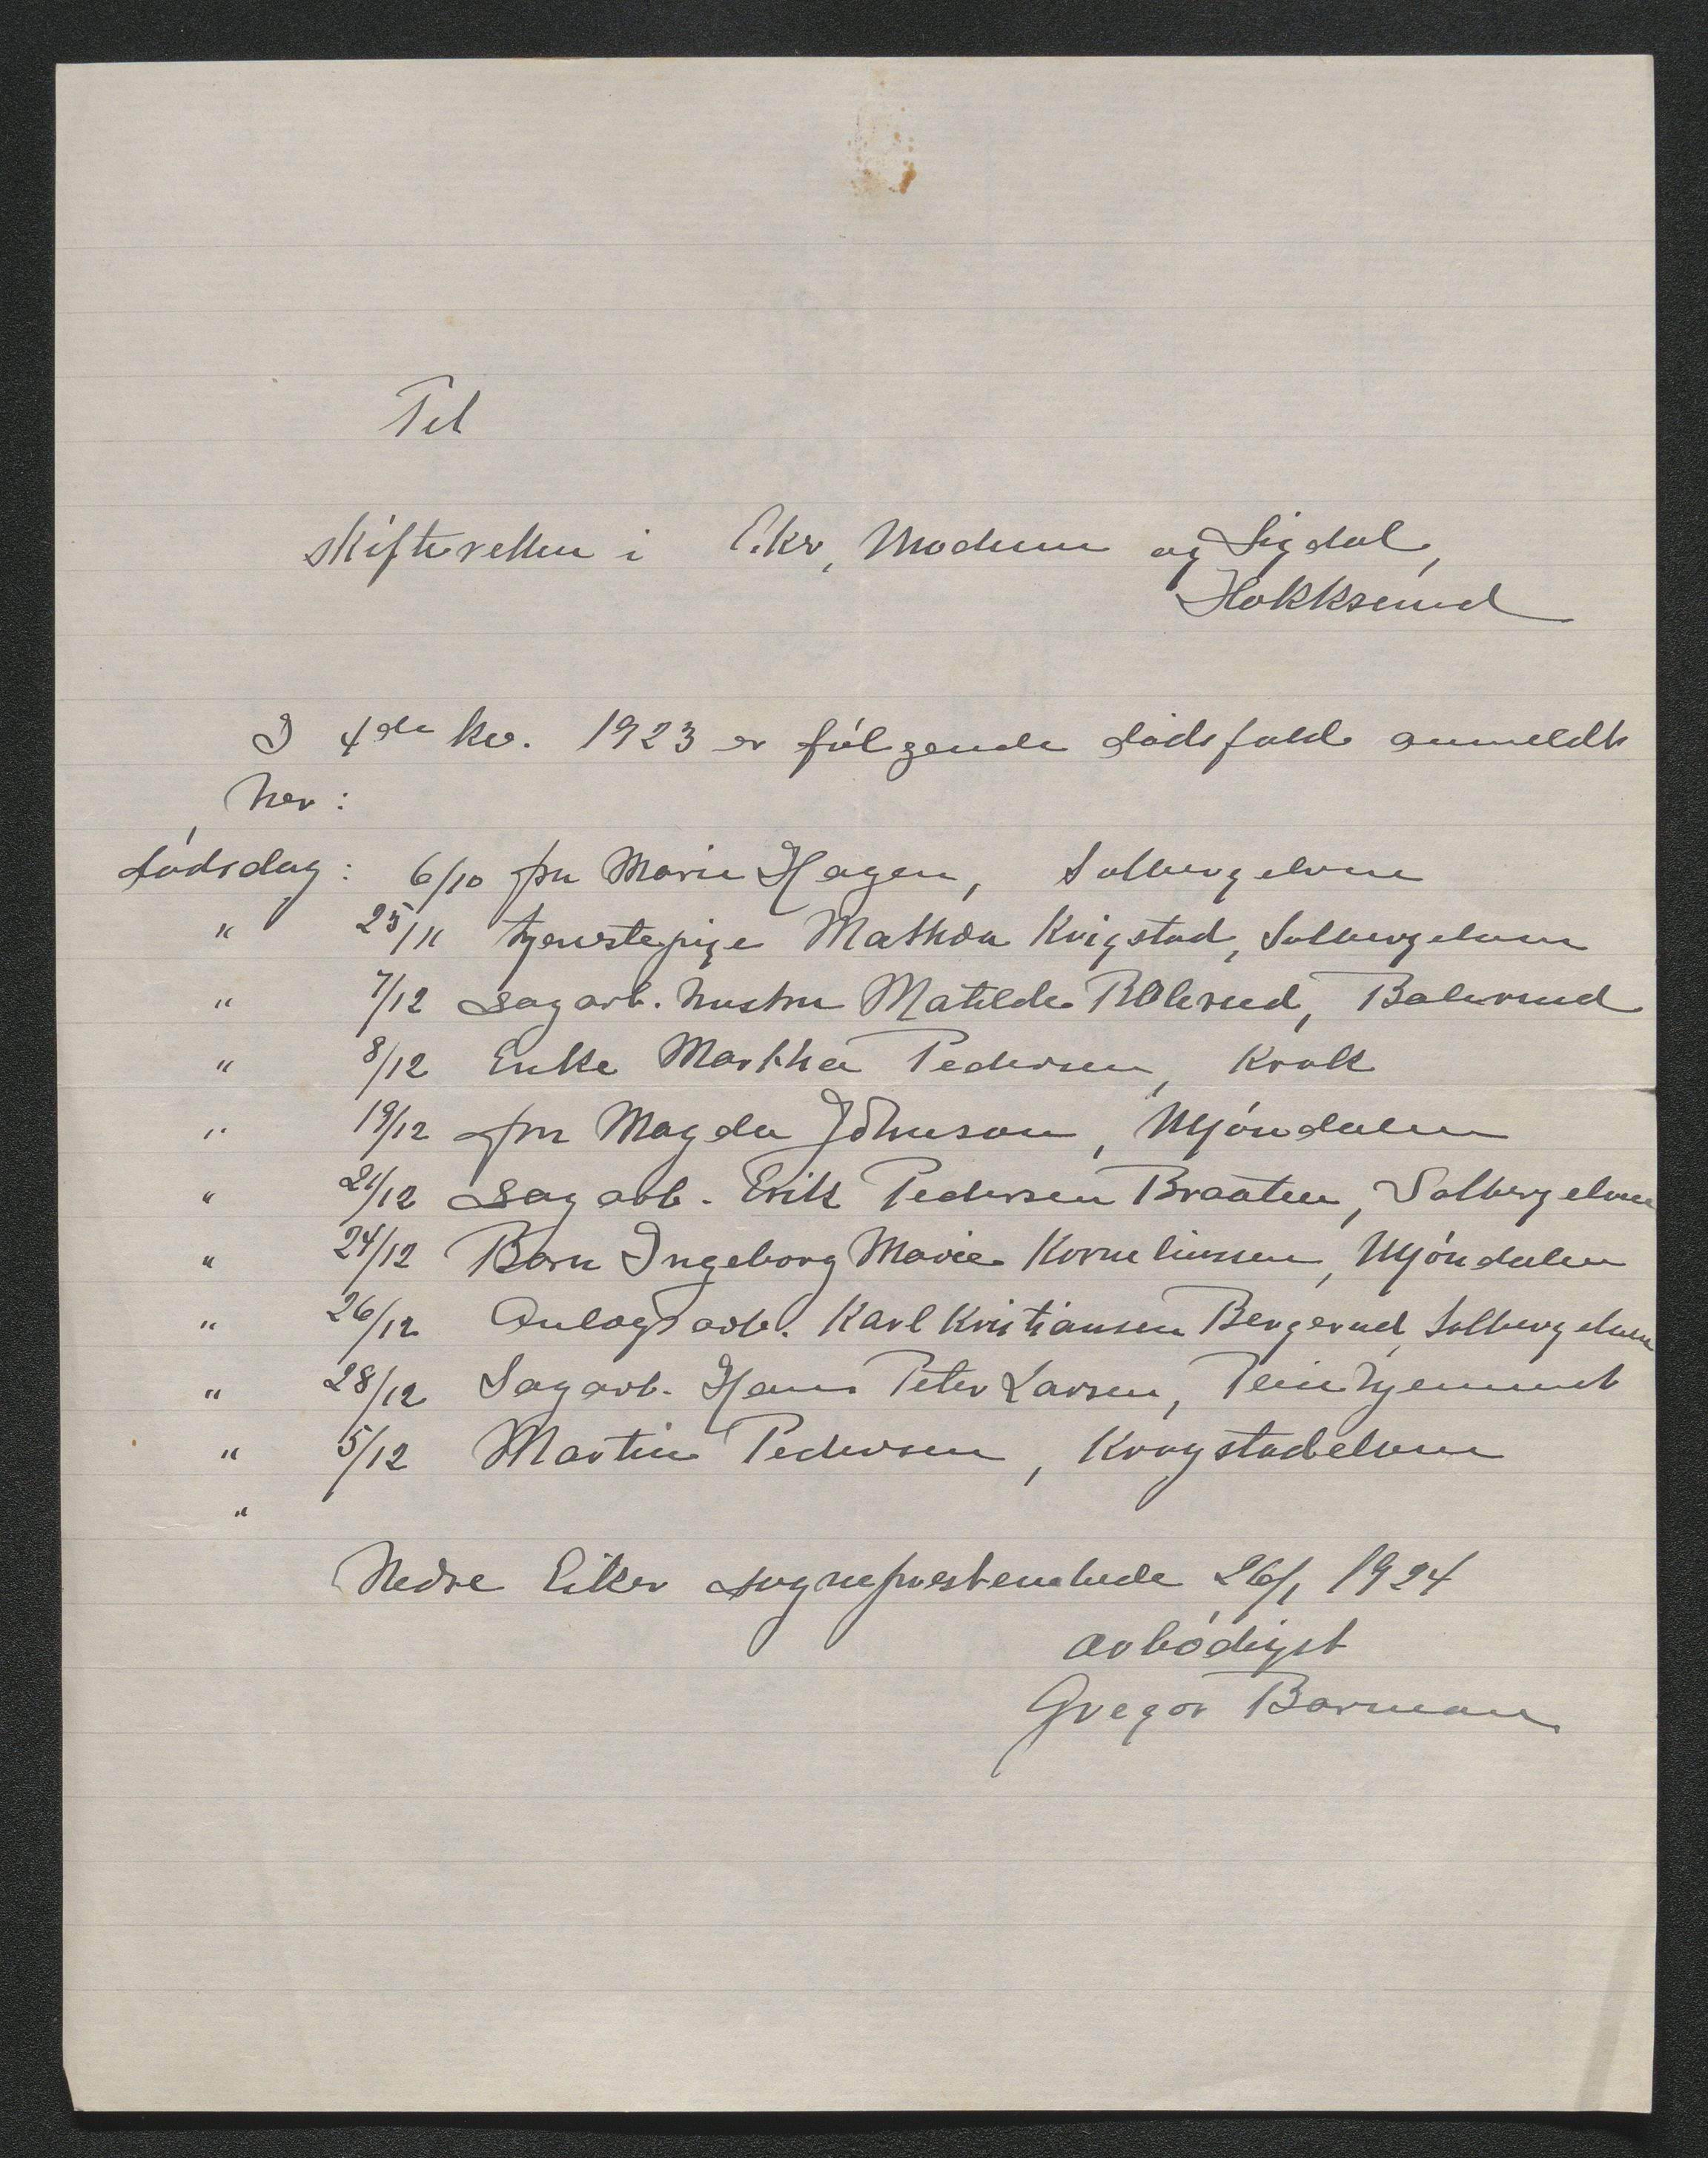 Til
skifteretten i Eker, Modum og Sigdal,
Hokksund
I 4de kv. 1923 er følgende dødsfald anmeldt
her:
dødsdag: 6/10 fru Marie Hagen, Solbergelven
" 25/11 tjenestepige Mathea Kvigstad, Solbergelven
" 7/12 sagarb. hustru Matilde Bolerud, Bolerud
" 8/12 Enke Marthea Pedersen, Krok
" 19/12 fru Magda Johnson, Mjøndalen
" 21/12 sagarb. Erik Pedersen Braaten, Solbergelven
" 24/12 Barn Ingeborg Marie Korneliussen, Mjøndalen
" 26/12 Anlægsarb. Karl Kristiansen Bergerud, Solbergelven
" 28/12 Sagarb. Hans Peter Larsen, Pleiehjemmet
" 5/12 Martin Pedersen, Krogstadelven
"
Nedre Eiker sogneprestembede 26/1 1924
ærbødigst
Gregor Borman